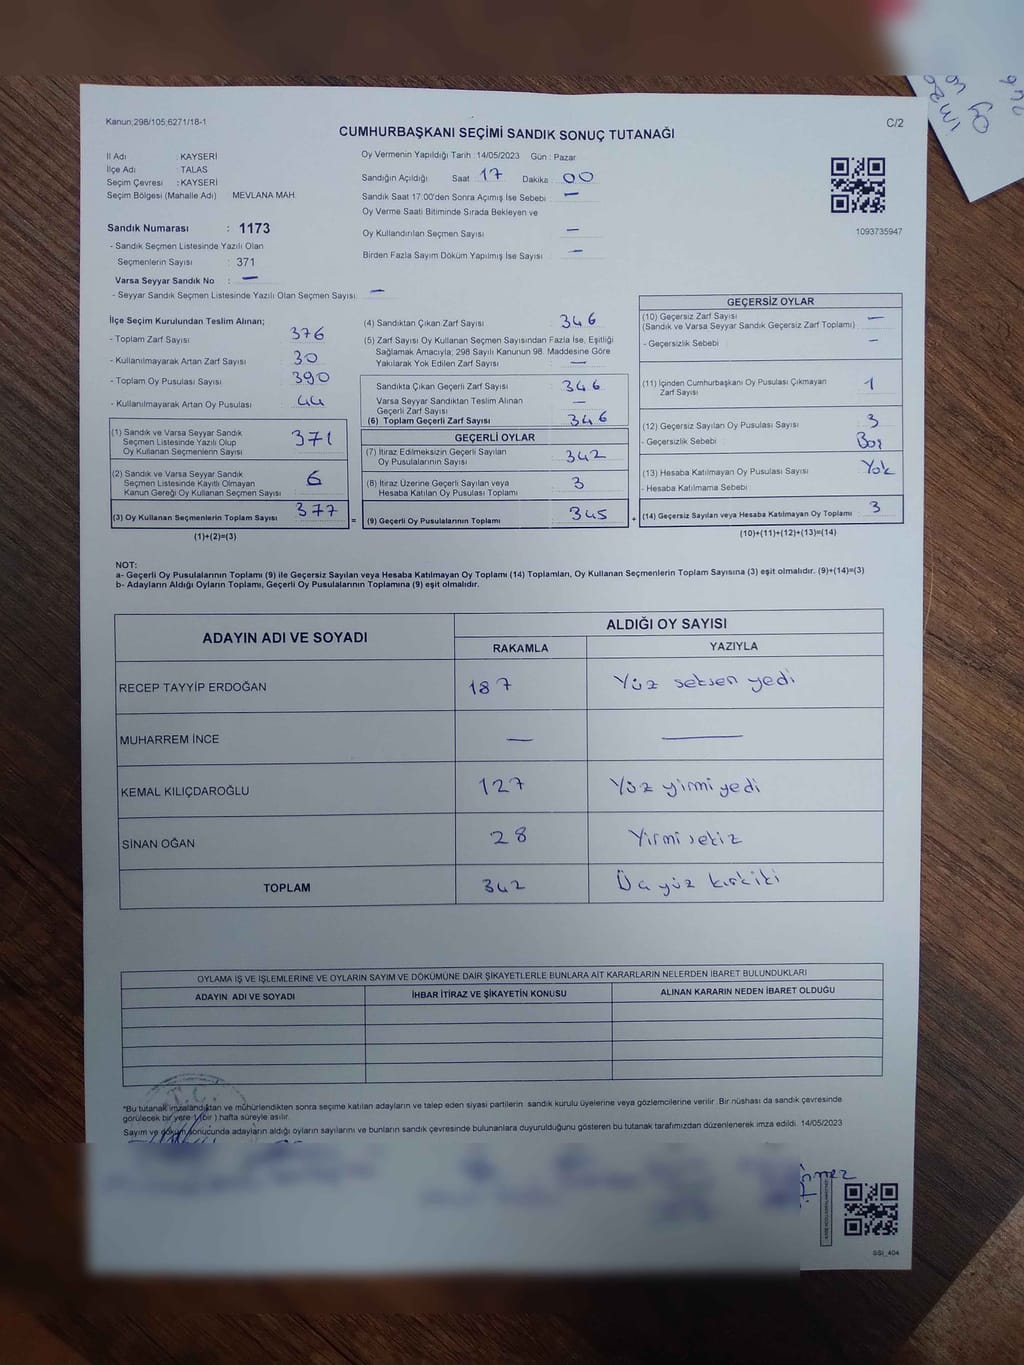 Kanun;298/105;6271/18-1
C/2
CUMHURBAŞKANI SEÇİMİ SANDIK SONUÇ TUTANAĞI
İl Adı : KAYSERİ
İlçe Adı : TALAS
Seçim Çevresi : KAYSERİ
Seçim Bölgesi (Mahalle Adı) MEVLANA MAH.
Sandık Numarası : 1173
- Sandık Seçmen Listesinde Yazılı Olan
Seçmenlerin Sayısı : 371
Varsa Seyyar Sandık No : —
- Seyyar Sandık Seçmen Listesinde Yazılı Olan Seçmen Sayısı: —
Oy Vermenin Yapıldığı Tarih : 14/05/2023 Gün : Pazar
Sandığın Açıldığı Saat 17 Dakika 00
Sandık Saat 17.00'den Sonra Açımış İse Sebebi —
Oy Verme Saati Bitiminde Sırada Bekleyen ve
Oy Kullandırılan Seçmen Sayısı —
Birden Fazla Sayım Döküm Yapılmış İse Sayısı —
1093735947
İlçe Seçim Kurulundan Teslim Alınan;
- Toplam Zarf Sayısı 376
- Kullanılmayarak Artan Zarf Sayısı 30
- Toplam Oy Pusulası Sayısı 390
- Kullanılmayarak Artan Oy Pusulası 44
(1) Sandık ve Varsa Seyyar Sandık
Seçmen Listesinde Yazılı Olup
Oy Kullanan Seçmenlerin Sayısı 371
(2) Sandık ve Varsa Seyyar Sandık
Seçmen Listesinde Kayıtlı Olmayan
Kanun Gereği Oy Kullanan Seçmen Sayısı 6
(3) Oy Kullanan Seçmenlerin Toplam Sayısı 377
(1)+(2)=(3)
(4) Sandıktan Çıkan Zarf Sayısı 346
(5) Zarf Sayısı Oy Kullanan Seçmen Sayısından Fazla İse, Eşitliği
Sağlamak Amacıyla; 298 Sayılı Kanunun 98. Maddesine Göre
Yakılarak Yok Edilen Zarf Sayısı : —
Sandıkta Çıkan Geçerli Zarf Sayısı 346
Varsa Seyyar Sandıktan Teslim Alınan
Geçerli Zarf Sayısı —
(6) Toplam Geçerli Zarf Sayısı 346
GEÇERLİ OYLAR
(7) İtiraz Edilmeksizin Geçerli Sayılan
Oy Pusulalarının Sayısı 342
(8) İtiraz Üzerine Geçerli Sayılan veya
Hesaba Katılan Oy Pusulası Toplamı 3
= (9) Geçerli Oy Pusulalarının Toplamı 345
GEÇERSİZ OYLAR
(10) Geçersiz Zarf Sayısı —
(Sandık ve Varsa Seyyar Sandık Geçersiz Zarf Toplamı)
- Geçersizlik Sebebi —
(11) İçinden Cumhurbaşkanı Oy Pusulası Çıkmayan
Zarf Sayısı 1
(12) Geçersiz Sayılan Oy Pusulası Sayısı 3
- Geçersizlik Sebebi Boş
(13) Hesaba Katılmayan Oy Pusulası Sayısı Yok
- Hesaba Katılmama Sebebi
+ (14) Geçersiz Sayılan veya Hesaba Katılmayan Oy Toplamı 3
(10)+(11)+(12)+(13)=(14)
NOT:
a- Geçerli Oy Pusulalarının Toplamı (9) ile Geçersiz Sayılan veya Hesaba Katılmayan Oy Toplamı (14) Toplamları, Oy Kullanan Seçmenlerin Toplam Sayısına (3) eşit olmalıdır. (9)+(14)=(3)
b- Adayların Aldığı Oyların Toplamı, Geçerli Oy Pusulalarının Toplamına (9) eşit olmalıdır.
ADAYIN ADI VE SOYADI ALDIĞI OY SAYISI
RAKAMLA YAZIYLA
RECEP TAYYİP ERDOĞAN 187 Yüz seksen yedi
MUHARREM İNCE — —
KEMAL KILIÇDAROĞLU 127 Yüz yirmi yedi
SİNAN OĞAN 28 Yirmi sekiz
TOPLAM 342 Üç yüz kırk iki
OYLAMA İŞ VE İŞLEMLERİNE VE OYLARIN SAYIM VE DÖKÜMÜNE DAİR ŞİKAYETLERLE BUNLARA AİT KARARLARIN NELERDEN İBARET BULUNDUKLARI
ADAYIN ADI VE SOYADI İHBAR İTİRAZ VE ŞİKAYETİN KONUSU ALINAN KARARIN NEDEN İBARET OLDUĞU
T.C.
*Bu tutanak imzalandıktan ve mühürlendikten sonra seçime katılan adayların ve talep eden siyasi partilerin sandık kurulu üyelerine veya gözlemcilerine verilir. Bir nüshası da sandık çevresinde
görülecek bir yere 1 (bir) hafta süreyle asılır.
Sayım ve döküm sonucunda adayların aldığı oyların sayılarını ve bunların sandık çevresinde bulunanlara duyurulduğunu gösteren bu tutanak tarafımızdan düzenlenerek imza edildi. 14/05/2023
SSI_404